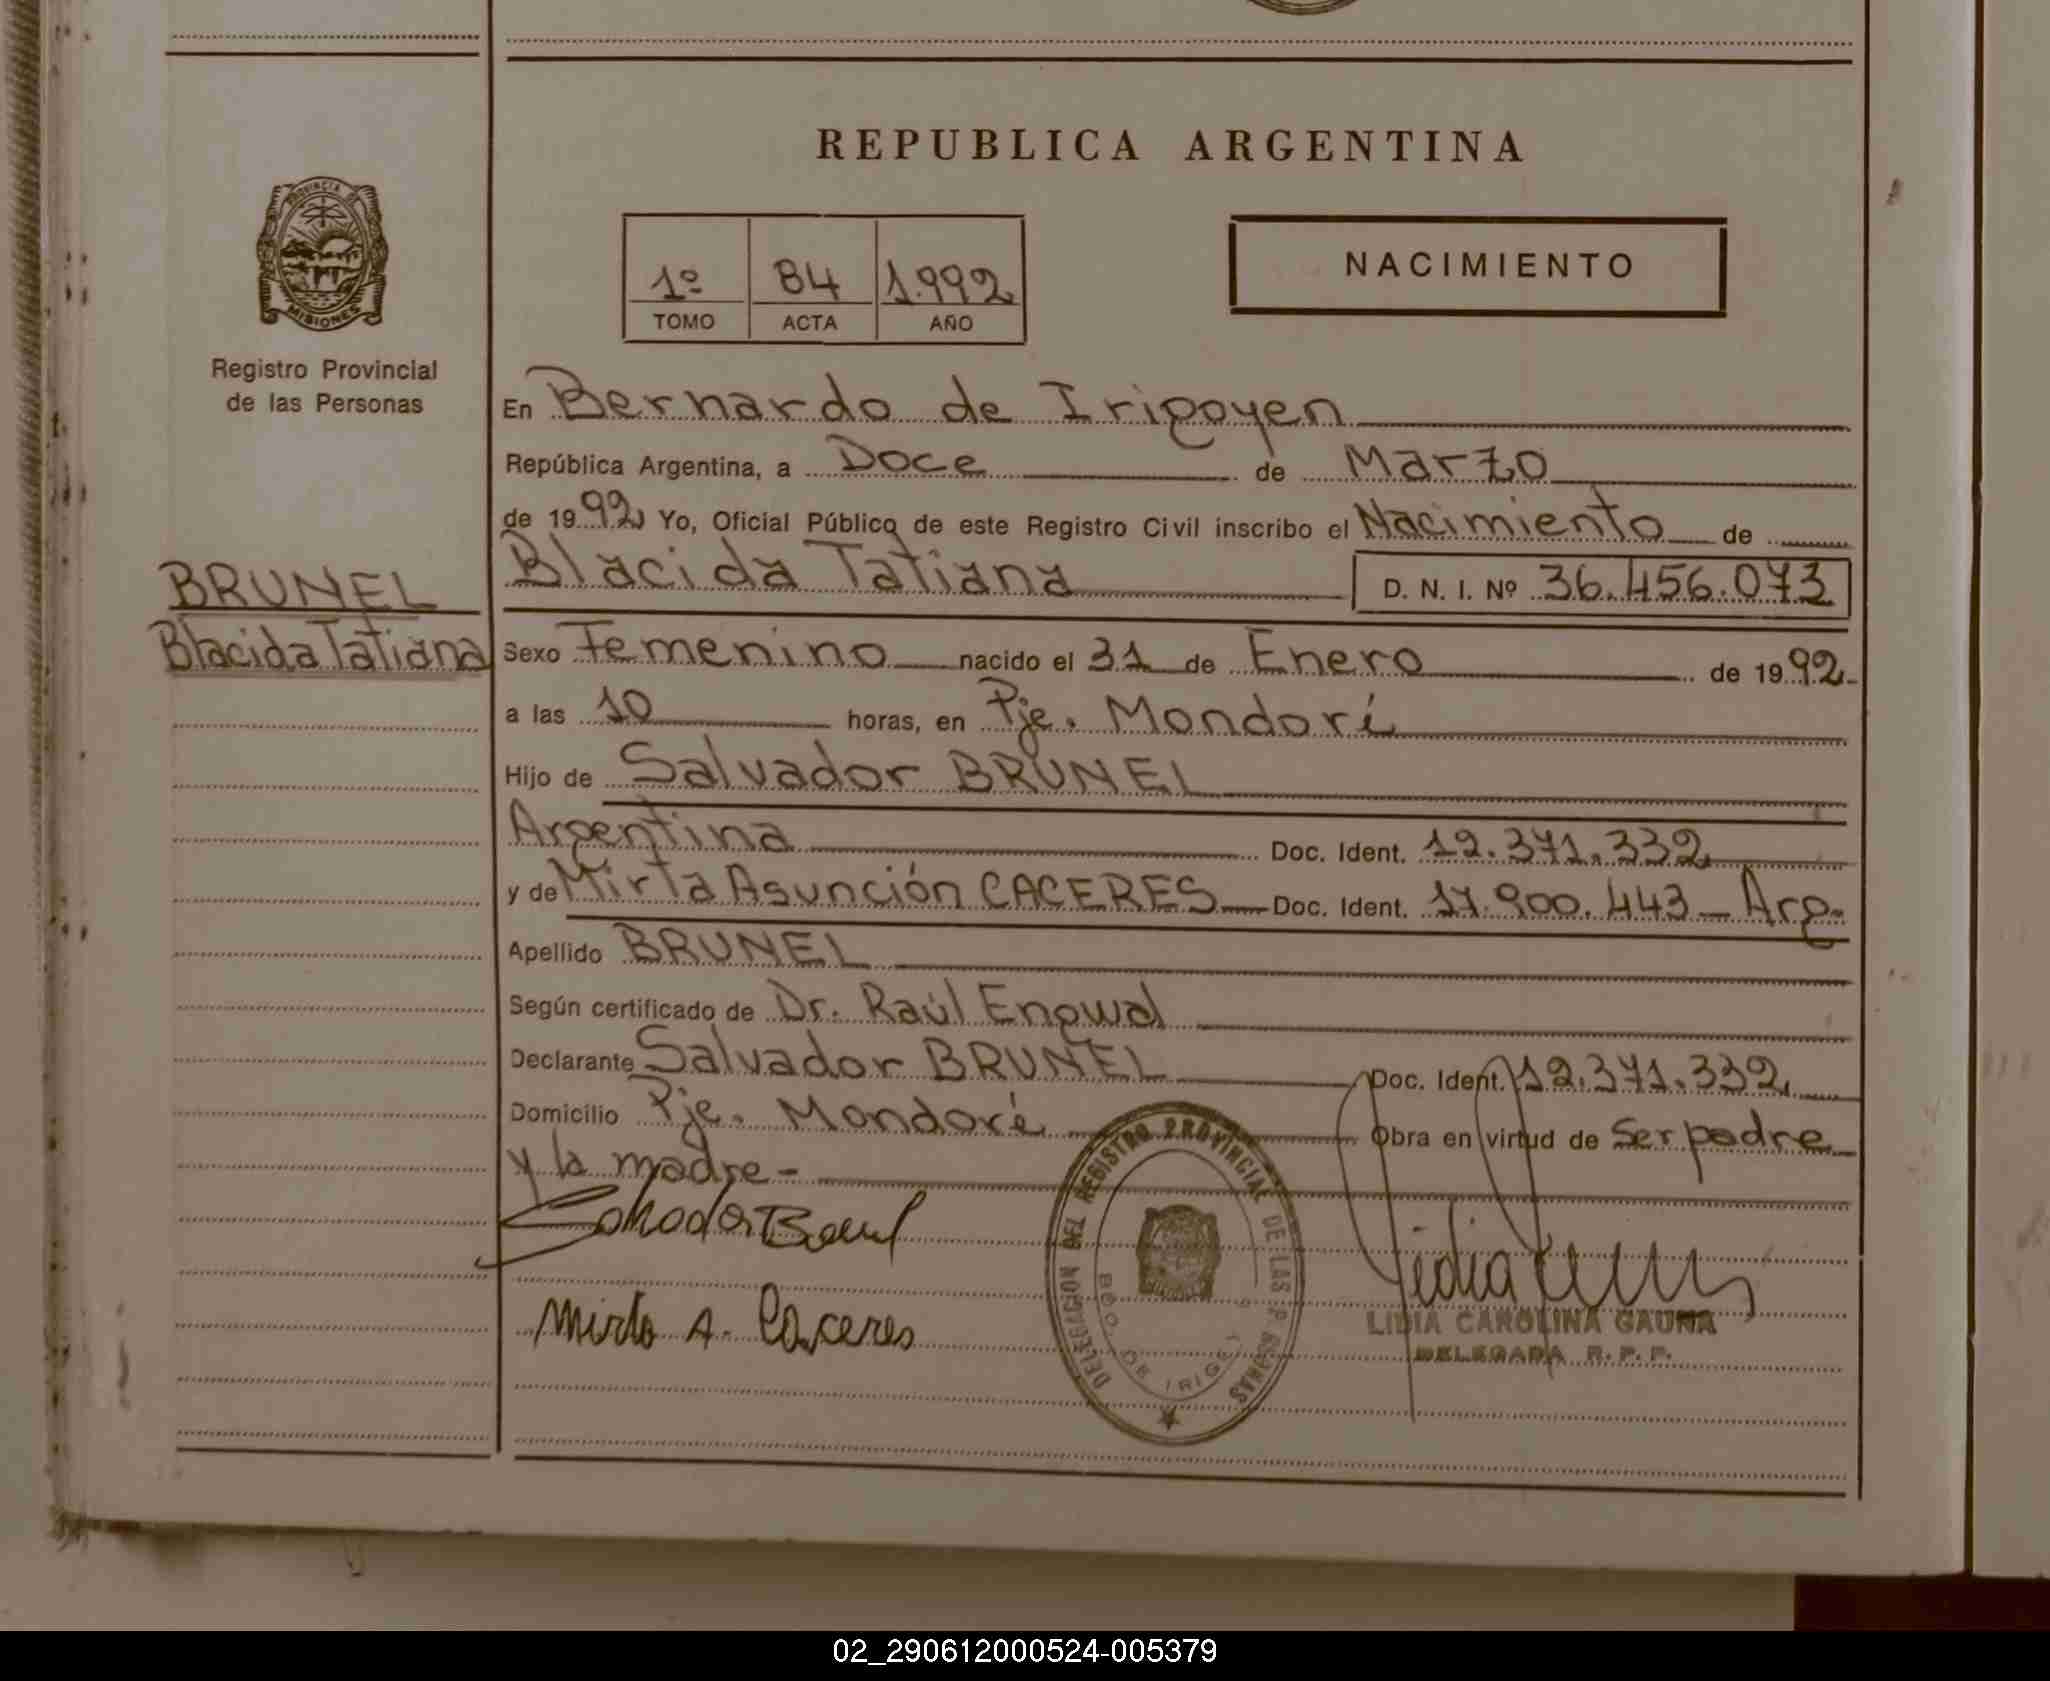 REPUBLICA ARGENTINA
PROVINCIA DE
MISIONES
Registro Provincial
de las Personas
1º 84 1.992
TOMO ACTA AÑO
NACIMIENTO
En Bernardo de Irigoyen
República Argentina, a Doce de Marzo
de 1992 Yo, Oficial Público de este Registro Civil inscribo el Nacimiento de
Blacida Tatiana D. N. I. Nº 36.456.073
BRUNEL
Blacida Tatiana
Sexo Femenino nacido el 31 de Enero de 1992
a las 10 horas, en Pje. Mondorí
Hijo de Salvador BRUNEL
Argentina Doc. Ident. 12.371.332
y de Mirta Asunción CACERES Doc. Ident. 17.900.443 Arg.
Apellido BRUNEL
Según certificado de Dr. Raúl Engwal
Declarante Salvador BRUNEL Doc. Ident. 12.371.332
Domicilio Pje. Mondoré Obra en virtud de Ser padre
y la madre -
DELEGACION DEL REGISTRO PROVINCIAL DE LAS PERSONAS
BDO. DE IRIGEN
Mirta A. Caceres
LIDIA CAROLINA GAUNA
DELEGADA R. P. P.
02_290612000524-005379